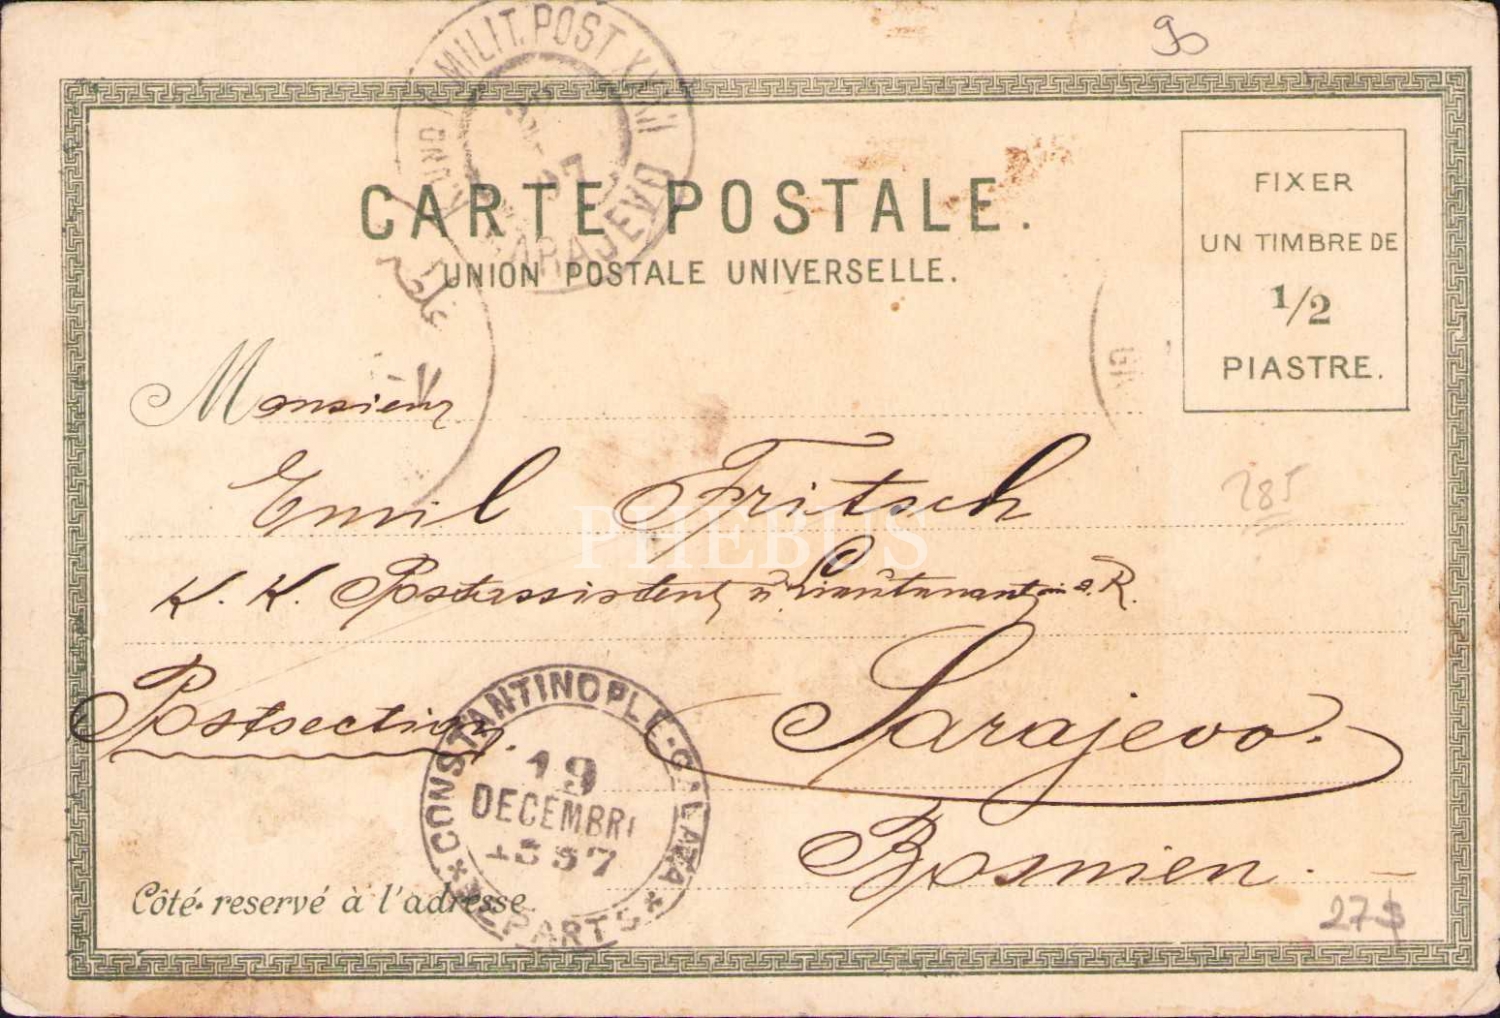 90
K. UND K. MILIT. POST XXXII
97
SARAJEVO
CARTE POSTALE.
UNION POSTALE UNIVERSELLE.
FIXER
UN TIMBRE DE
1/2
PIASTRE.
Monsieur
Emil Fritsch
285
K. K. Postassistent u. Lieutenant i. d. R.
Postsection.
Sarajevo.
Bosnien.
CONSTANTINOPLE-GALATA
19
DECEMBRE
1897
DEPARTS
Côté reservé à l'adresse
PHEBUS